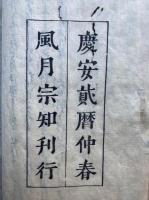 慶安貳暦仲春
風月宗知刊行